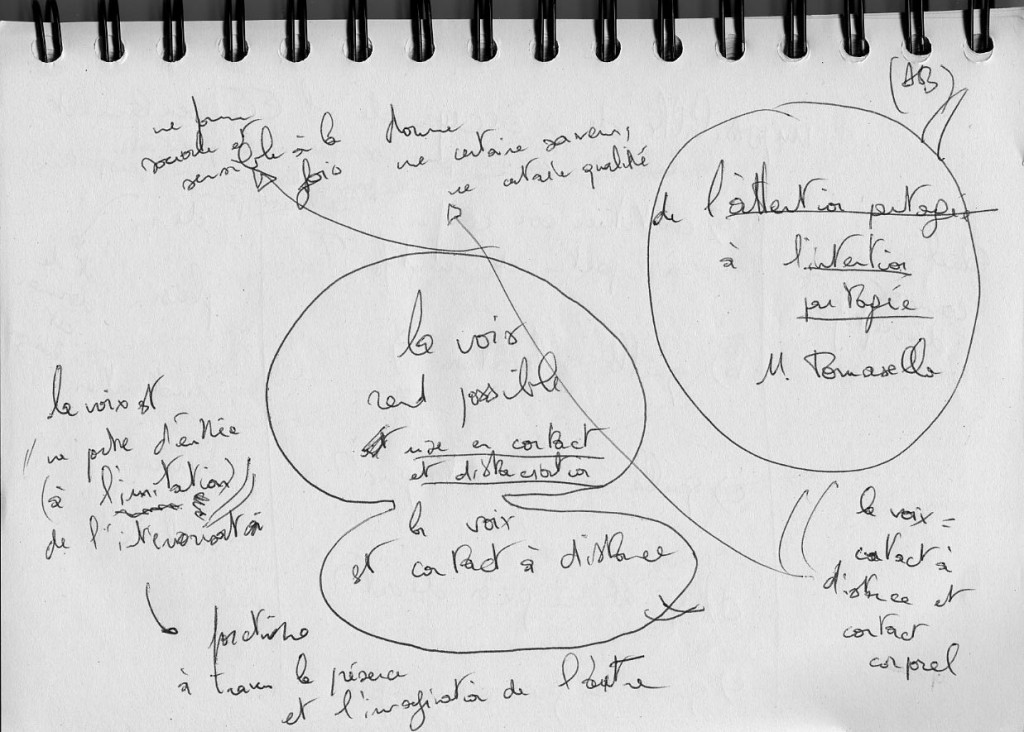 une forme
sonore et
sensible à la
fois
donne
une certaine saveur,
une certaine qualité
(AB)
de l'attention partagée
à l'intention
partagée
M. Tomasello
la voix
rend possible
et mise en contact
et distanciation
la voix
est contact à distance
la voix est
une porte d'entrée
(à l'imitation)
de l'intériorisation
fonctionne
à travers la présence
et l'imagination de l'autre
la voix =
contact à
distance et
contact
corporel